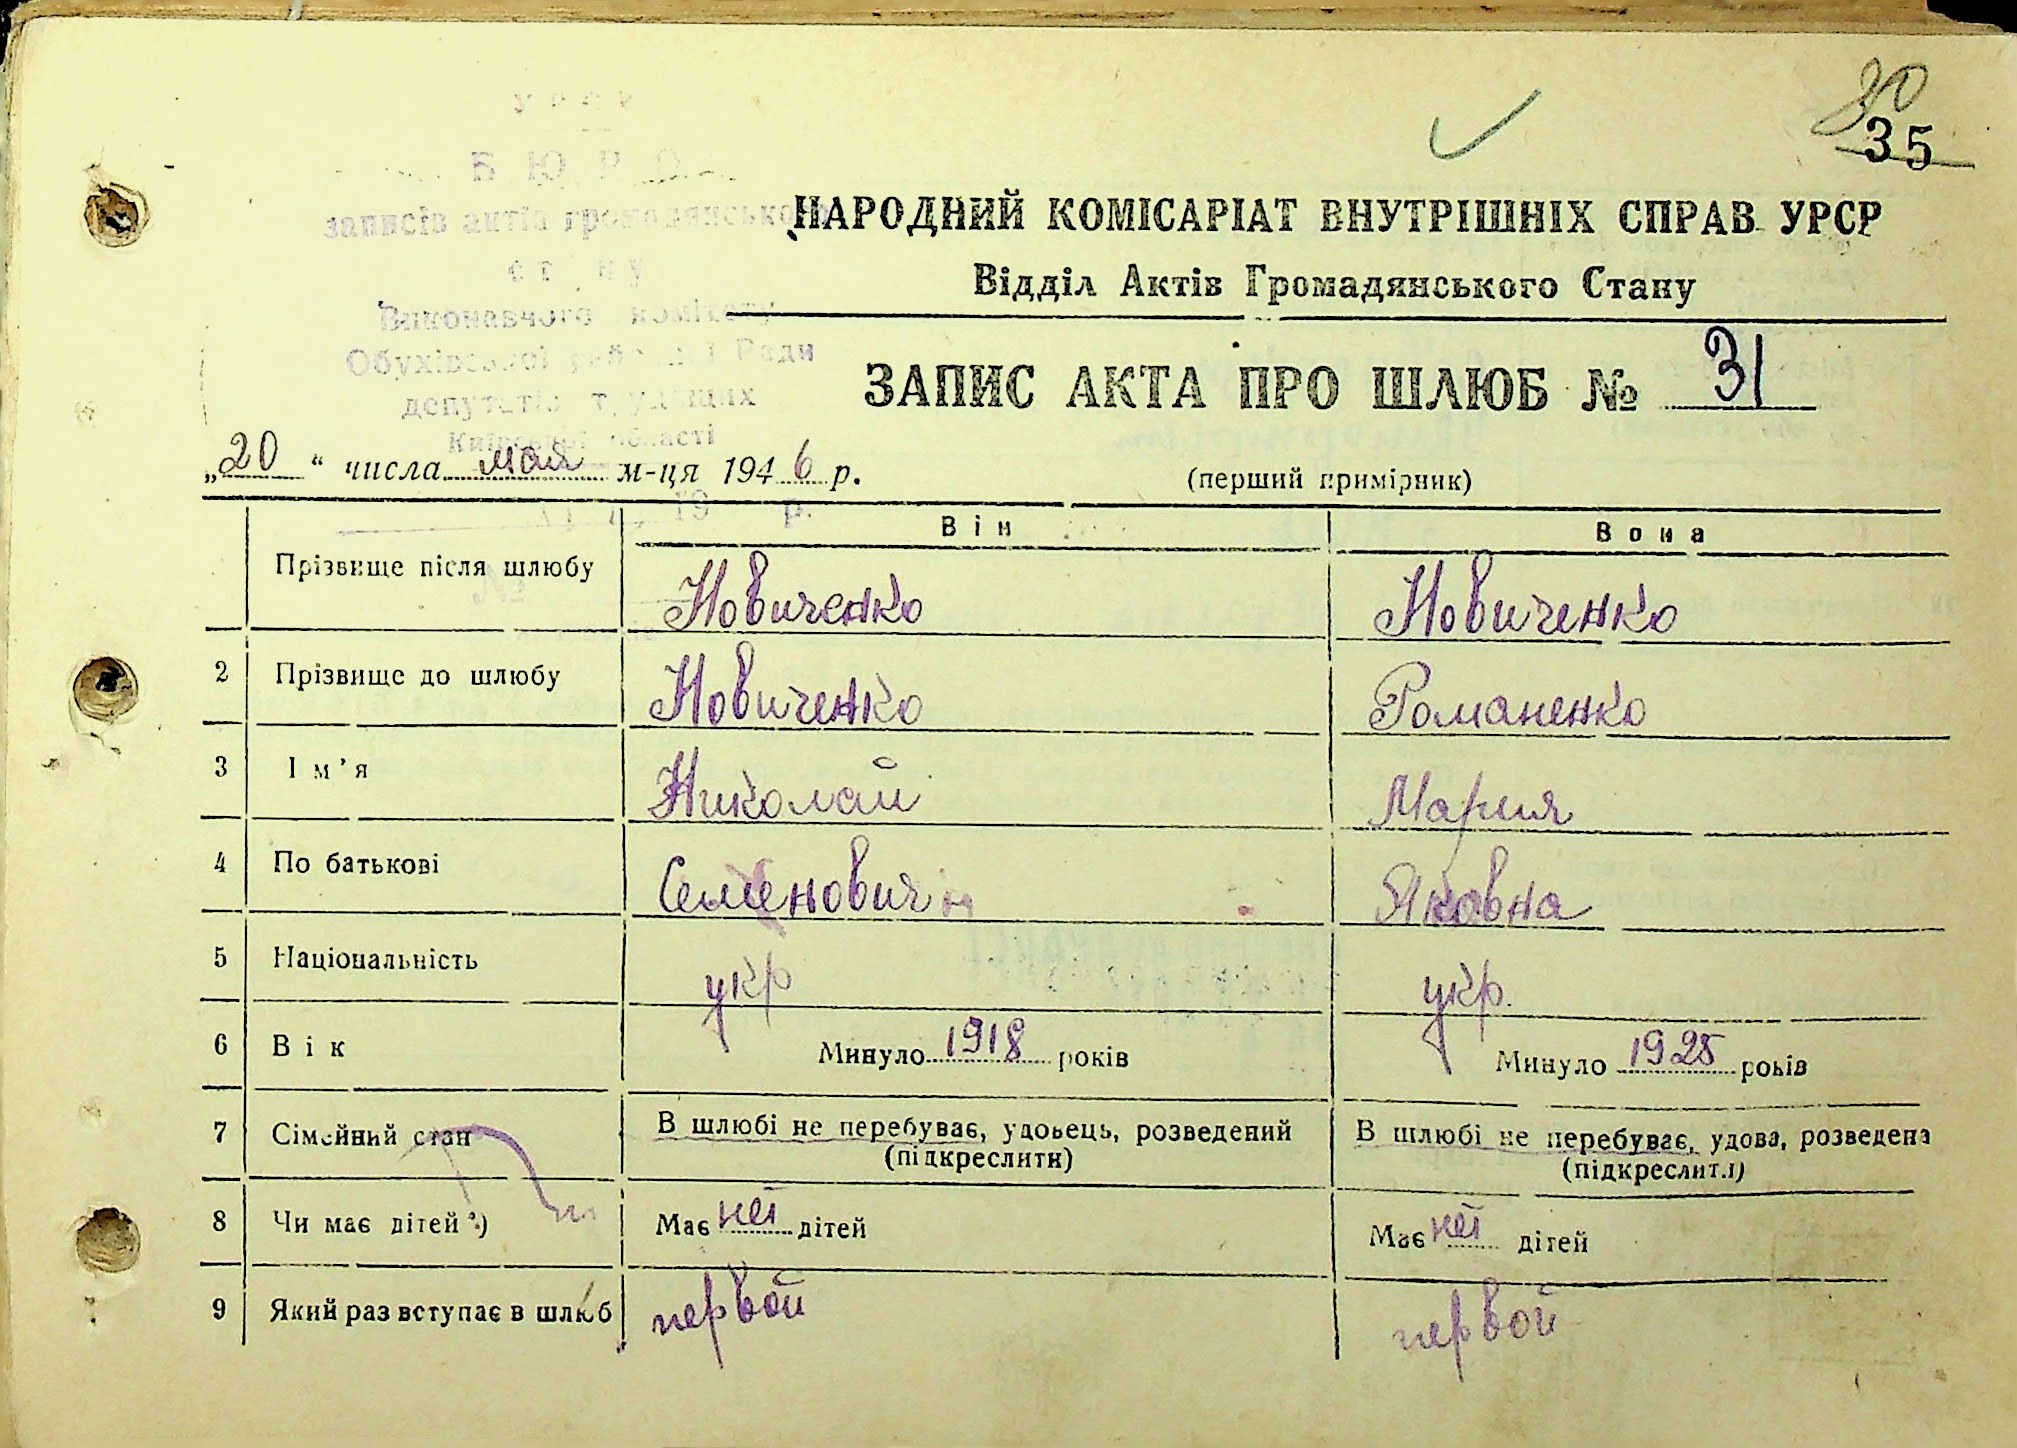 УРСР
БЮРО
записів актів громадянського
стану
Виконавчого комітету
Обухівської районної Ради
депутатів трудящих
Київської області
19 р.
№
80
35
НАРОДНИЙ КОМІСАРІАТ ВНУТРІШНІХ СПРАВ УРСР
Відділ Актів Громадянського Стану
ЗАПИС АКТА ПРО ШЛЮБ № 31
„20“ числа мая м-ця 1946 р.
(перший примірник)
Він Вона
Прізвище після шлюбу Новиченко Новиченко
2 Прізвище до шлюбу Новиченко Романенко
3 Ім’я Николай Мария
4 По батькові Семенович Яковна
5 Національність укр укр.
6 Вік Минуло 1918 років Минуло 1925 років
7 Сімейний стан В шлюбі не перебуває, удовець, розведений В шлюбі не перебуває, удова, розведена
(підкреслити) (підкреслити)
8 Чи має дітей *) Має нет дітей Має нет дітей
9 Який раз вступає в шлюб первой первой